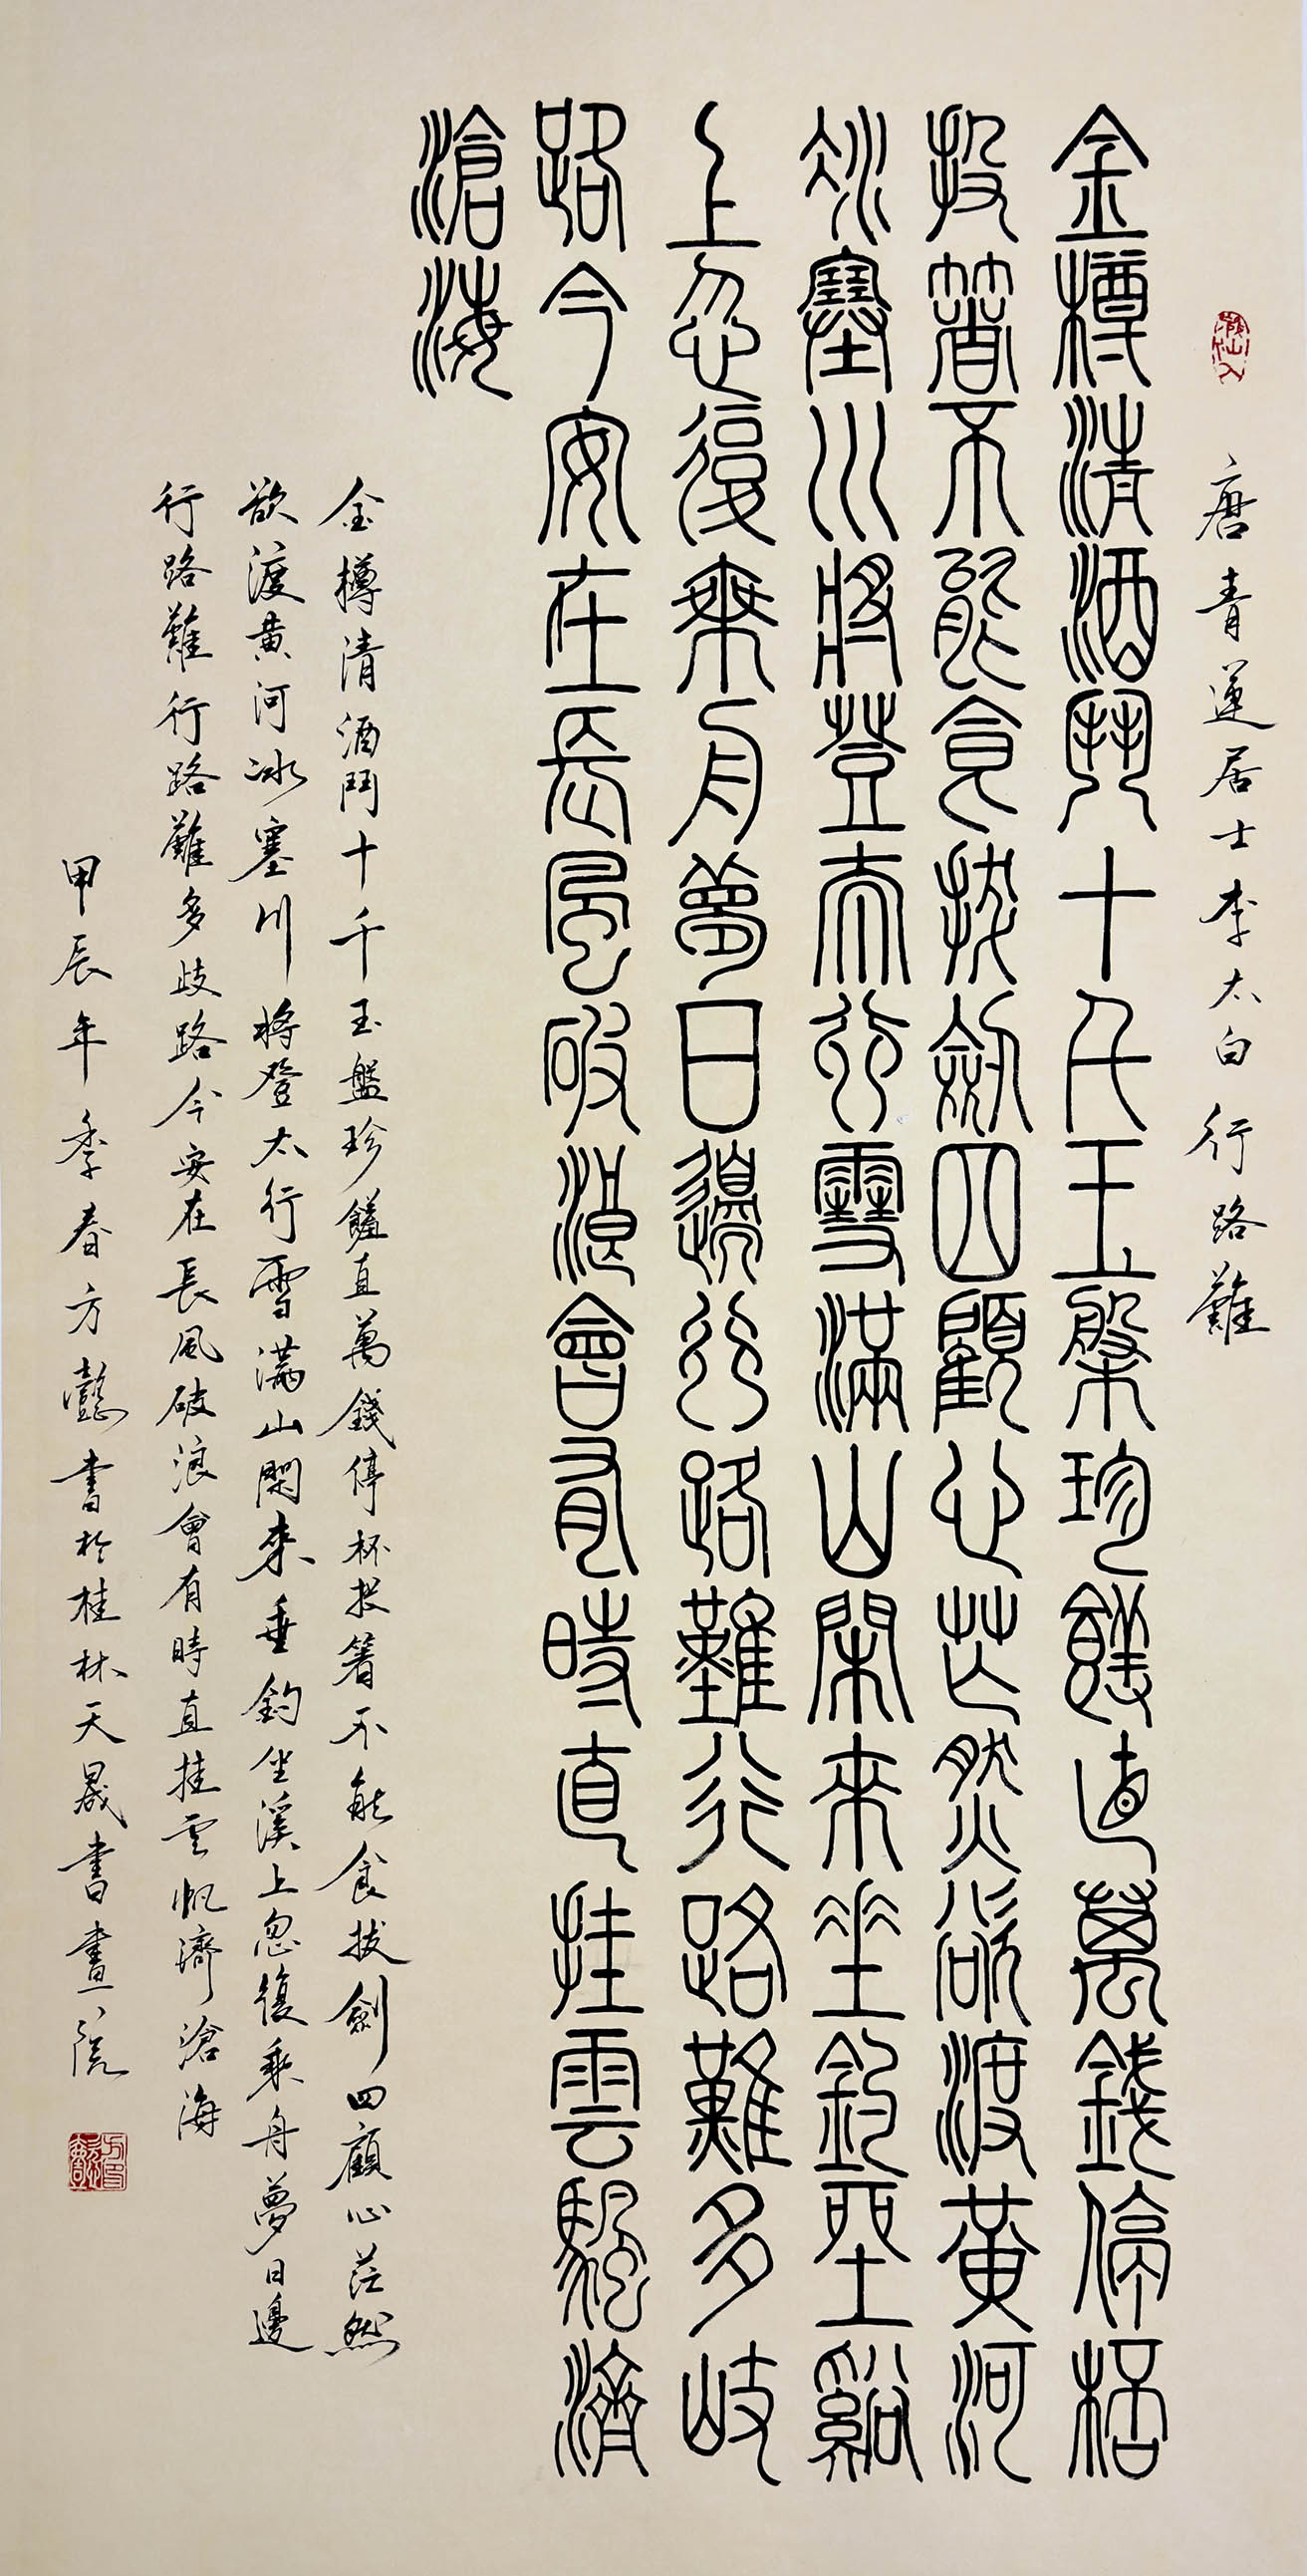 唐青蓮居士李太白 行路難
金樽清酒鬥十千玉槃珍饈直萬錢停桮
投箸不能食拔劍四顧心茫然欲渡黃河
冰塞川將登太行雪滿山閑來垂釣坐谿
上忽復乘舟夢日邊行路難行路難多岐
路今安在長風破浪會有時直挂雲帆濟
滄海
金樽清酒鬥十千玉盤珍饈直萬錢停杯投箸不能食拔劍四顧心茫然
欲渡黃河冰塞川將登太行雪滿山閑來垂釣坐溪上忽復乘舟夢日邊
行路難行路難多歧路今安在長風破浪會有時直挂云帆濟滄海
甲辰年季春方懿書於桂林天晟書畫院